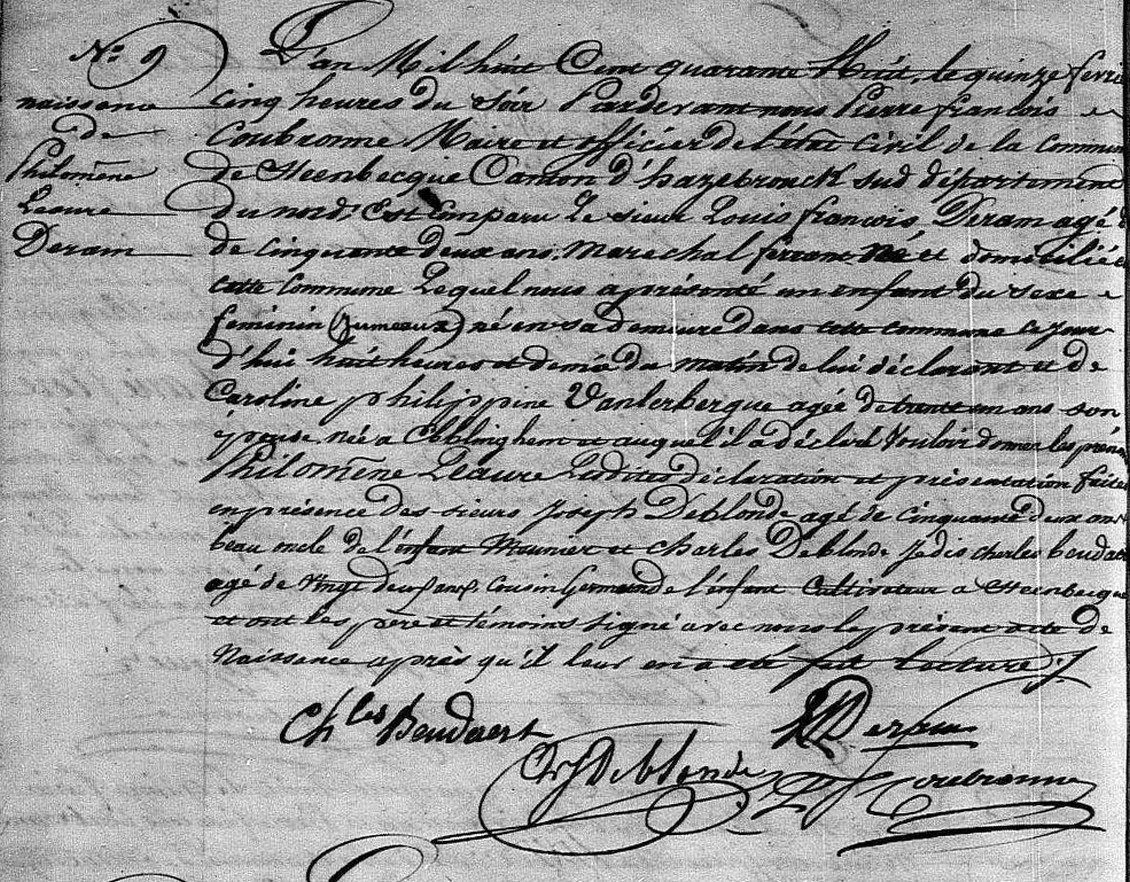 N.º 9
naissence
de
Philomène
Leaure
Deram
L'an Mil huit Cent quarante Huit, le quinze fevrie
cinq heures du Soir Pardevant nous Pierre François
Coubronne Maire et officier de l'état Civil de la Commun
de Steenbecque Canton d'hazebrouck sud département
du nord. Est Comparu Le sieur Louis françois, Deram agé
de cinquante deux ans, Marechal ferrant né et domicilié
cette Commune Lequel nous a présenté un enfant du sexe
feminin (Jumeaux) né en sa demeure dans cette commune ce jour
d'hui huit heures et demie du matin de lui déclarant et de
Caroline philippine Vanlerbergue agée de trente un ans son
épouse, née a Ebblinghem et auquel il a déclaré Vouloir donner les préno
Philomène Leaure Lesdites déclaration et présentation faites
en présence des sieurs Joseph Deblonde agé de cinquante deux ans
beau oncle de l'enfant Meunier et Charles Deblonde Jadis charles beudaert
agé de Vingt deux ans, Cousin Germain de l'enfant Cultivateur a Steenbecque
et ont les père et témoins signé avec nous le présent acte de
Naissence après qu'il leur en a été fait Lecture ./.
Ch les Beudaert
Deram
Deblonde
P f Coubronne